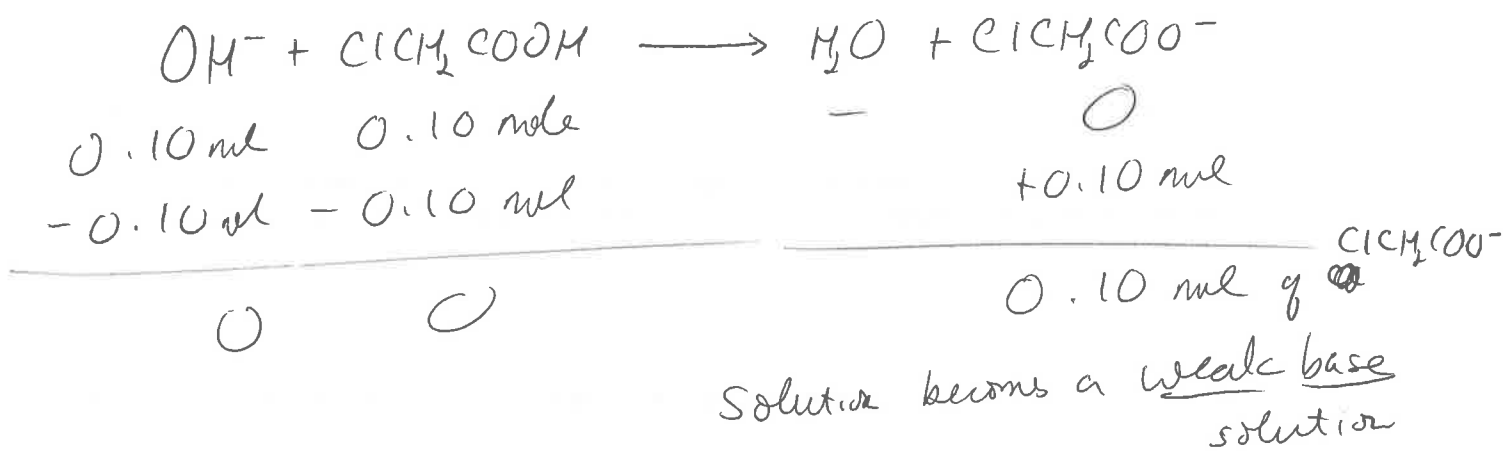 OH⁻ + ClCH₂COOH ⟶ H₂O + ClCH₂COO⁻
0.10 mol 0.10 mole – 0
-0.10 mol - 0.10 mol +0.10 mol
0 0 0.10 mol of ClCH₂COO⁻
Solution becoms a weak base
solution